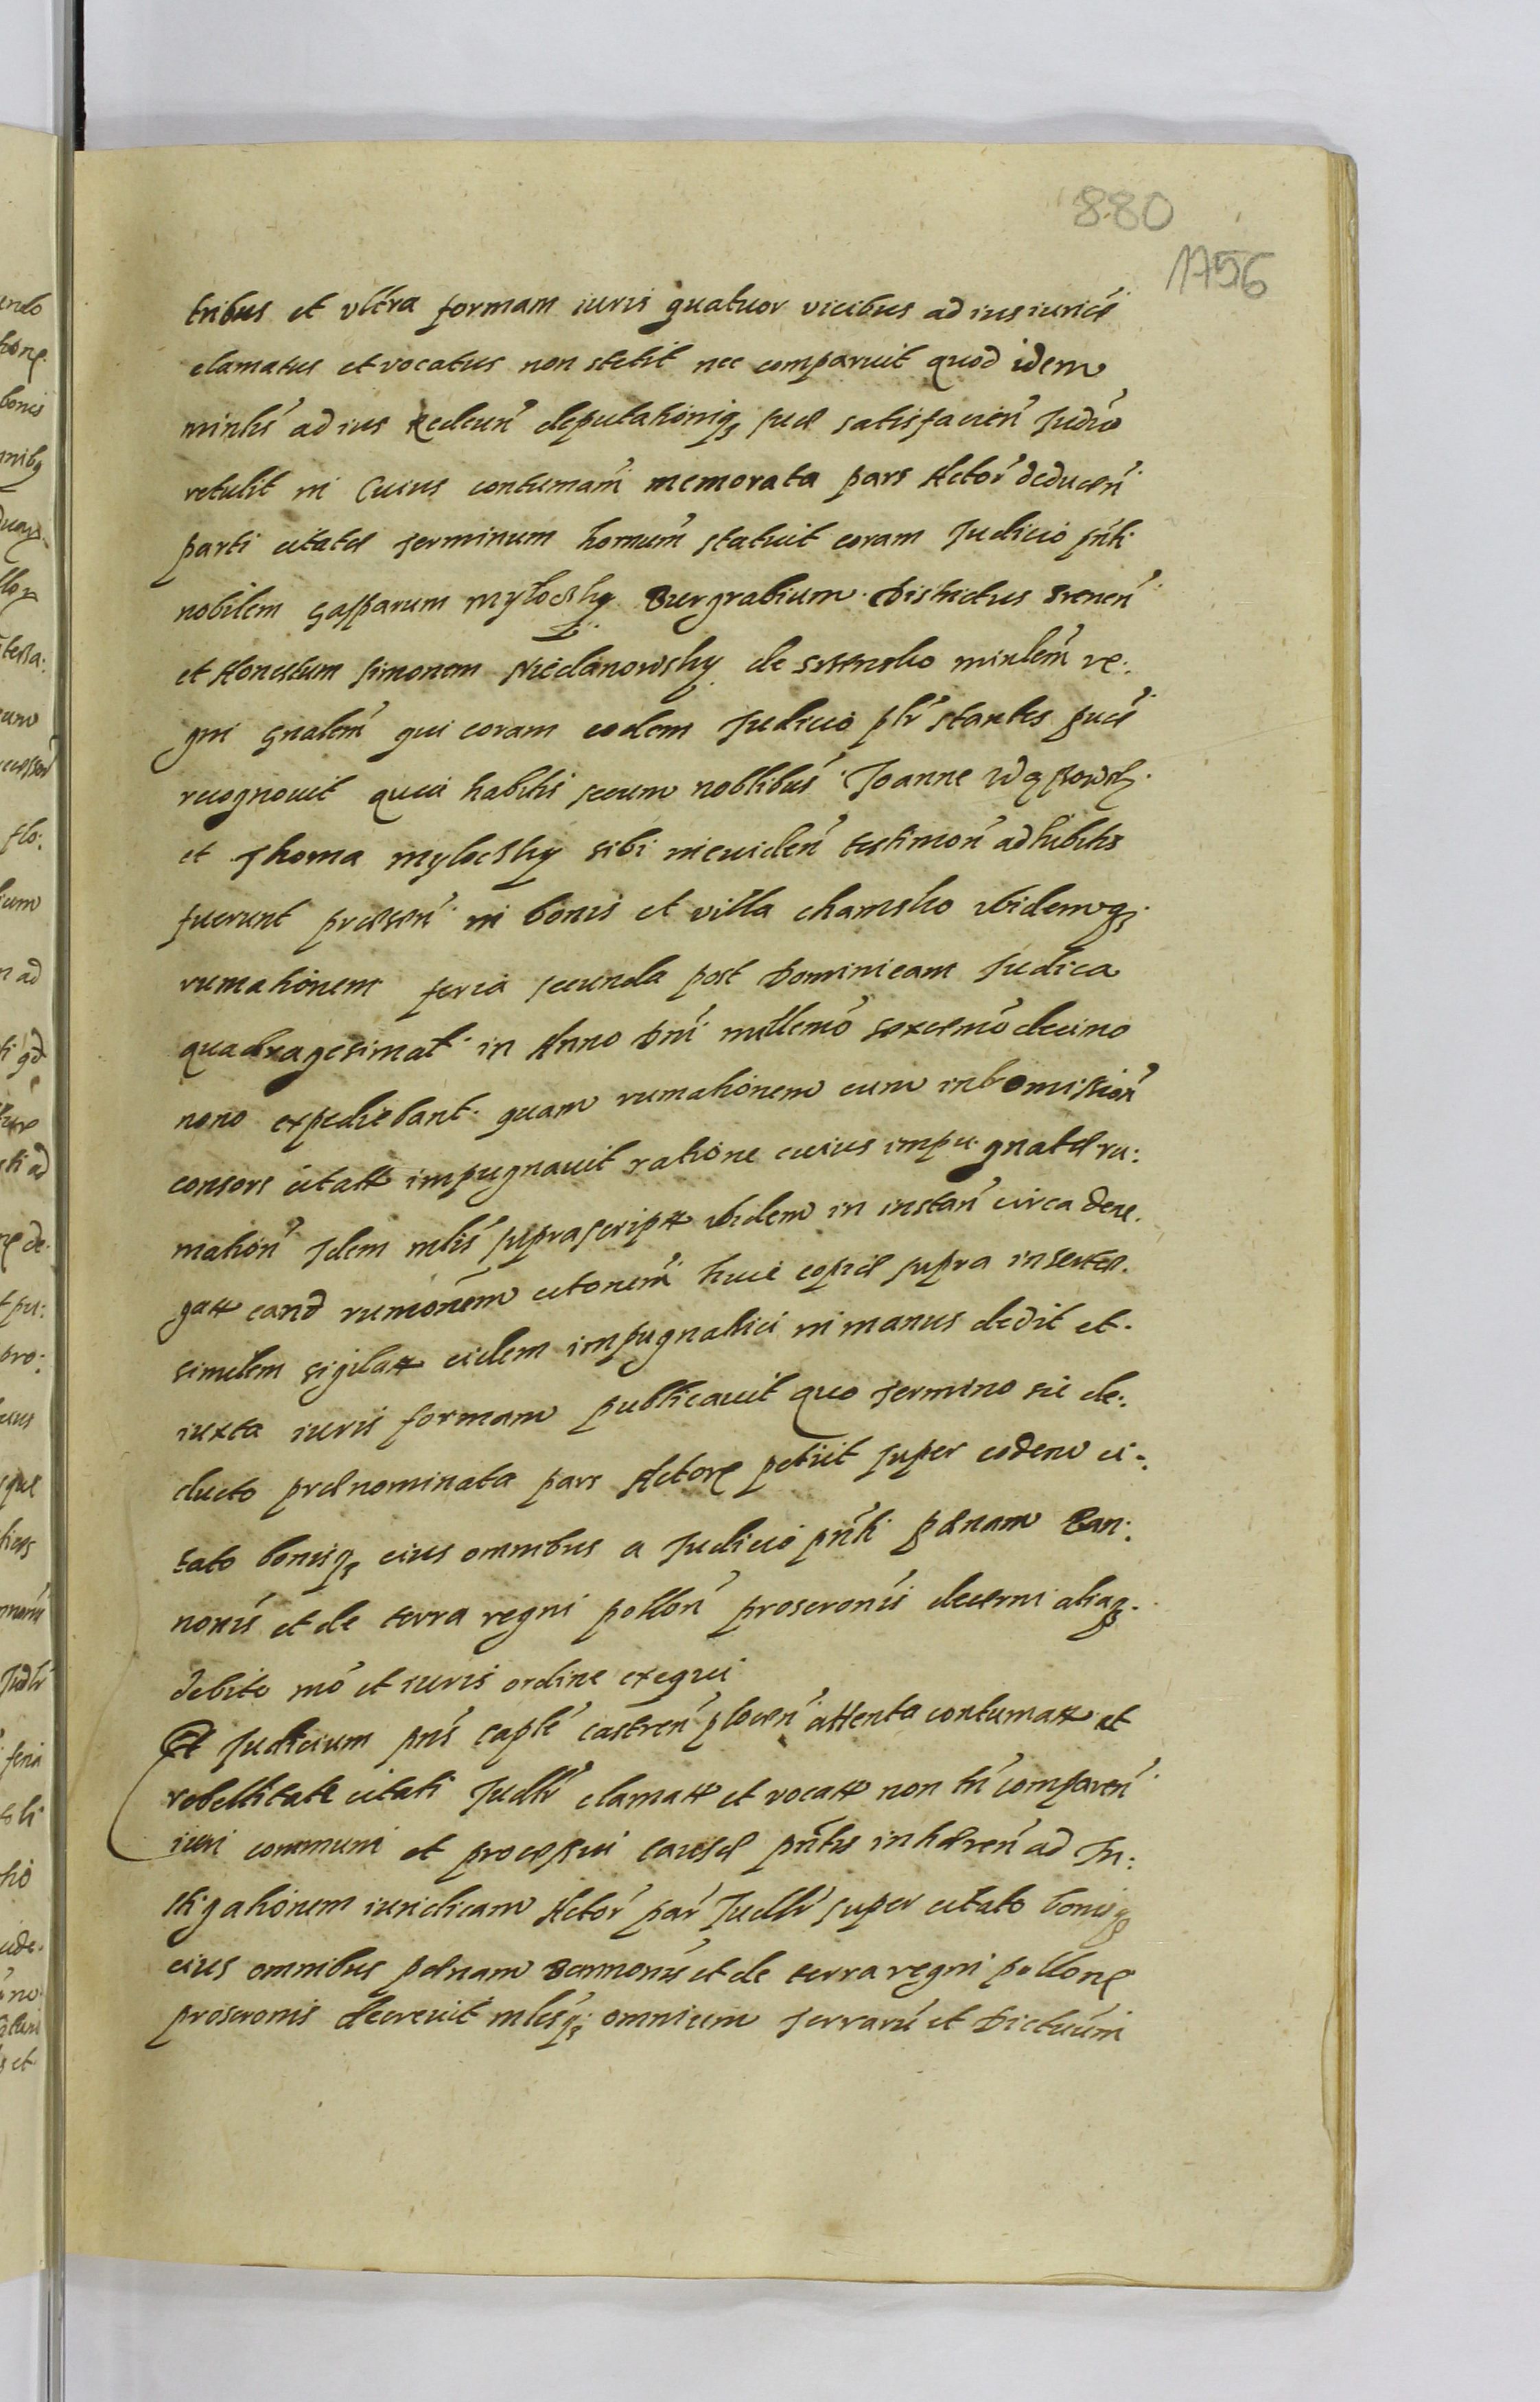 880
1756
tribus et vltra formam iuris quatuor vicibus ad ius iurice
clamatus et vocatus non stetit nec comparuit quod idem
minlis ad ius redeun deputationiq3 suæ satisfacien Judico
retulit in Cuius contumam memorata pars Actor deducen
parti citatæ terminum homum statuit coram Judicio pnti
nobilem Gasparum Mylocsky Burgrabium Districtus Srenen
et Honestum Simonem Niedanowsky de minlem re:
gni gnalem qui coram eodem Judicio plr stantes
recognouit quia habitis secum noblibus Joanne
et Thoma Mylocsky sibi in euiden testimon adhibitis
fuerunt præsen in bonis et villa Chamsko ibidemq3
rumationem feria secunda post Dominicam Judica
quadragesimal in Anno Dni millemo sexcemo decimo
nono expediebant quam rumationem cum intromission
consors citati impugnauit ratione cuius impugnatæ ru:
mation Idem mlis suprascript ibidem in instan circa dene
gat eand rumonem citonem huic copiæ supra insertæ
similem sigilat eidem impugnatrici in manus dedit et
iuxta iuris formam publicauit quo termino sic de:
ducto prænominata pars Actore petiit super eodem ci:
tato bonisq3 eius omnibus a Judicio pnti pænam Ban:
nonis et de terra regni pollon proscronis decerni aliaq3
debito mo et iuris ordine exequi
Et Judicium pns caple castren plocen attenta contumat et
rebellitate citati Judltr clamat et vocat non tn comparen
iuri communi et processui causæ pntis inhæren ad In:
stigationem iuridicam Actor par Judltr super citato bonisq3
eius omnibus pænam Bannonis et de terra regni pollone
proscronis decreuit mlesq3 omnium Terraru et Dictuum